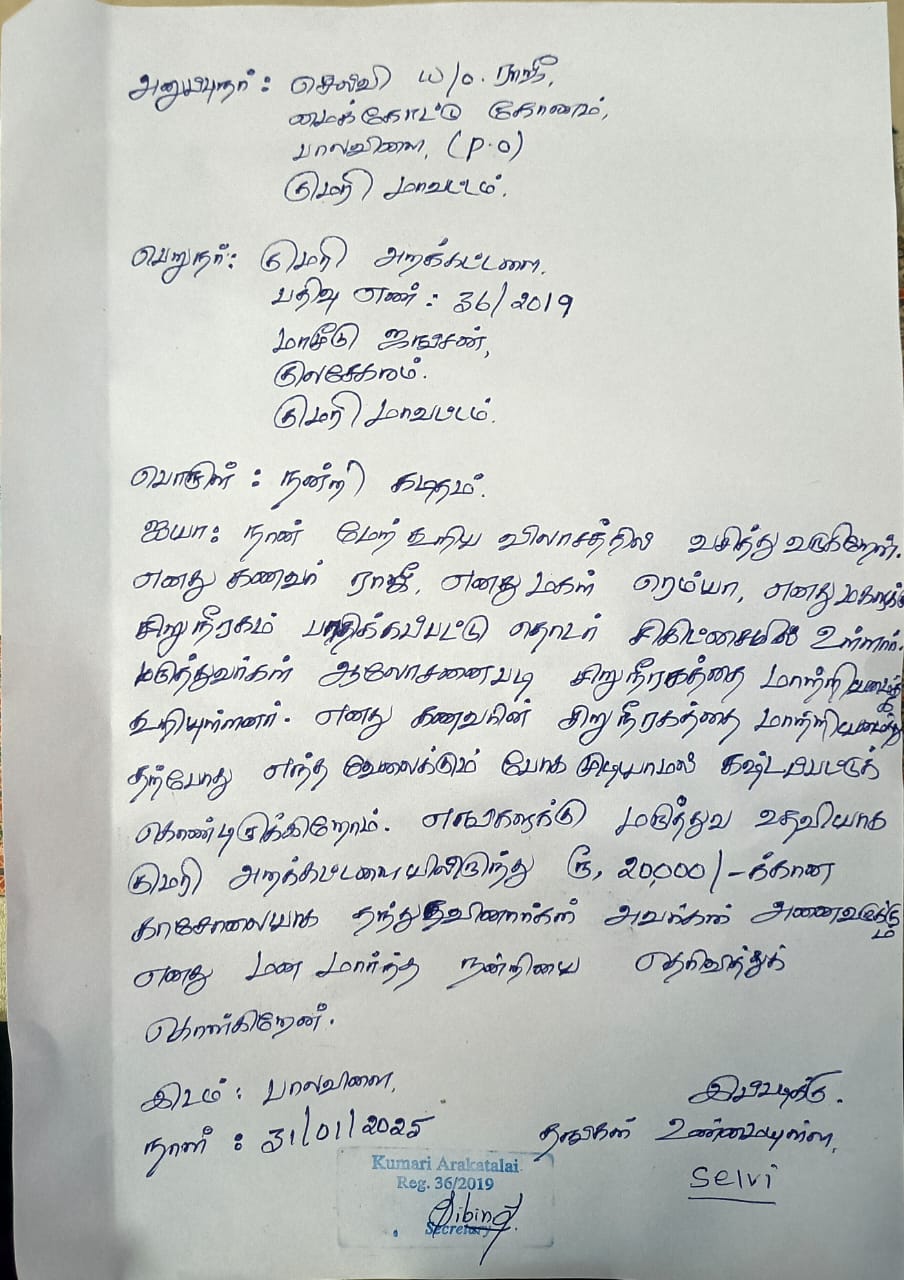 அனுப்புநர் : செல்வி w/o. ராஜீ,
மைக்கோட்டு கோணம்,
பாலவிளை, (P.O)
குமரி மாவட்டம்.
பெறுநர் : குமரி அறக்கட்டளை.
பதிவு எண் : 36/2019
மாசீடு ஜங்சன்,
குலசேகரம்.
குமரி மாவட்டம்.
பொருள் : நன்றி கடிதம்.
ஐயா: நான் மேற்கூறிய விலாசத்தில் வசித்து வருகிறேன்.
எனது கணவர் ராஜீ, எனது மகள் ரெம்யா, எனது மகளுக்கு
சிறுநீரகம் பாதிக்கப்பட்டு தொடர் சிகிட்சையில் உள்ளார்.
மருத்துவர்கள் ஆலோசனைபடி சிறுநீரகத்தை மாற்றியமைக்க
கூறியுள்ளனர். எனது கணவரின் சிறுநீரகத்தை மாற்றியமைத்து
தற்போது எந்த வேலைக்கும் போக முடியாமல் கஷ்டப்பட்டுக்
கொண்டிருக்கிறோம். எங்களுக்கு மருத்துவ உதவியாக
குமரி அறக்கட்டளையிலிருந்து ரூ, 20,000/-க்கான
காசோலையாக தந்து உதவினார்கள் அவர்கள் அனைவருக்கும்
எனது மன மார்ந்த நன்றியை தெரிவித்துக்
கொள்கிறேன்.
இடம் : பாலவிளை, இப்படிக்கு.
நாள் : 31/01/2025 தங்கள் உண்மையுள்ள,
Selvi
Kumari Arakatalai
Reg. 36/2019
Secretary